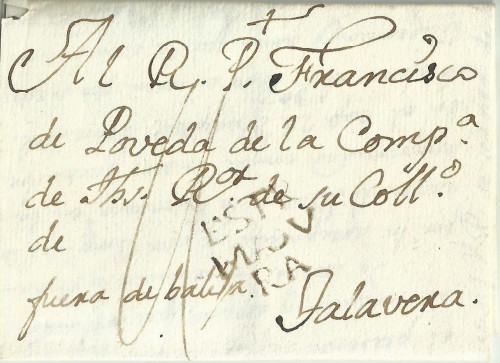 +
Al R. P. Francisco
de Poveda de la Comp.ª
de Jhs. R.ᵒʳ de su Coll.º
de
fuera de balija Talavera.
MADV
RA